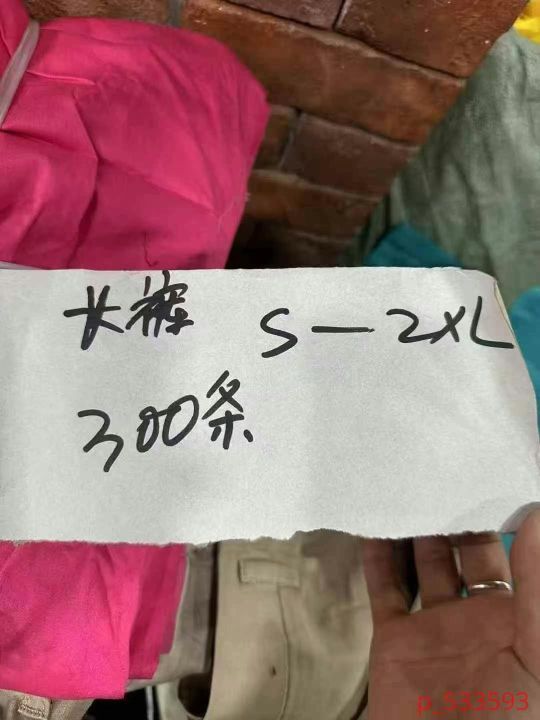 长裤 S—2XL
300条
p_533593